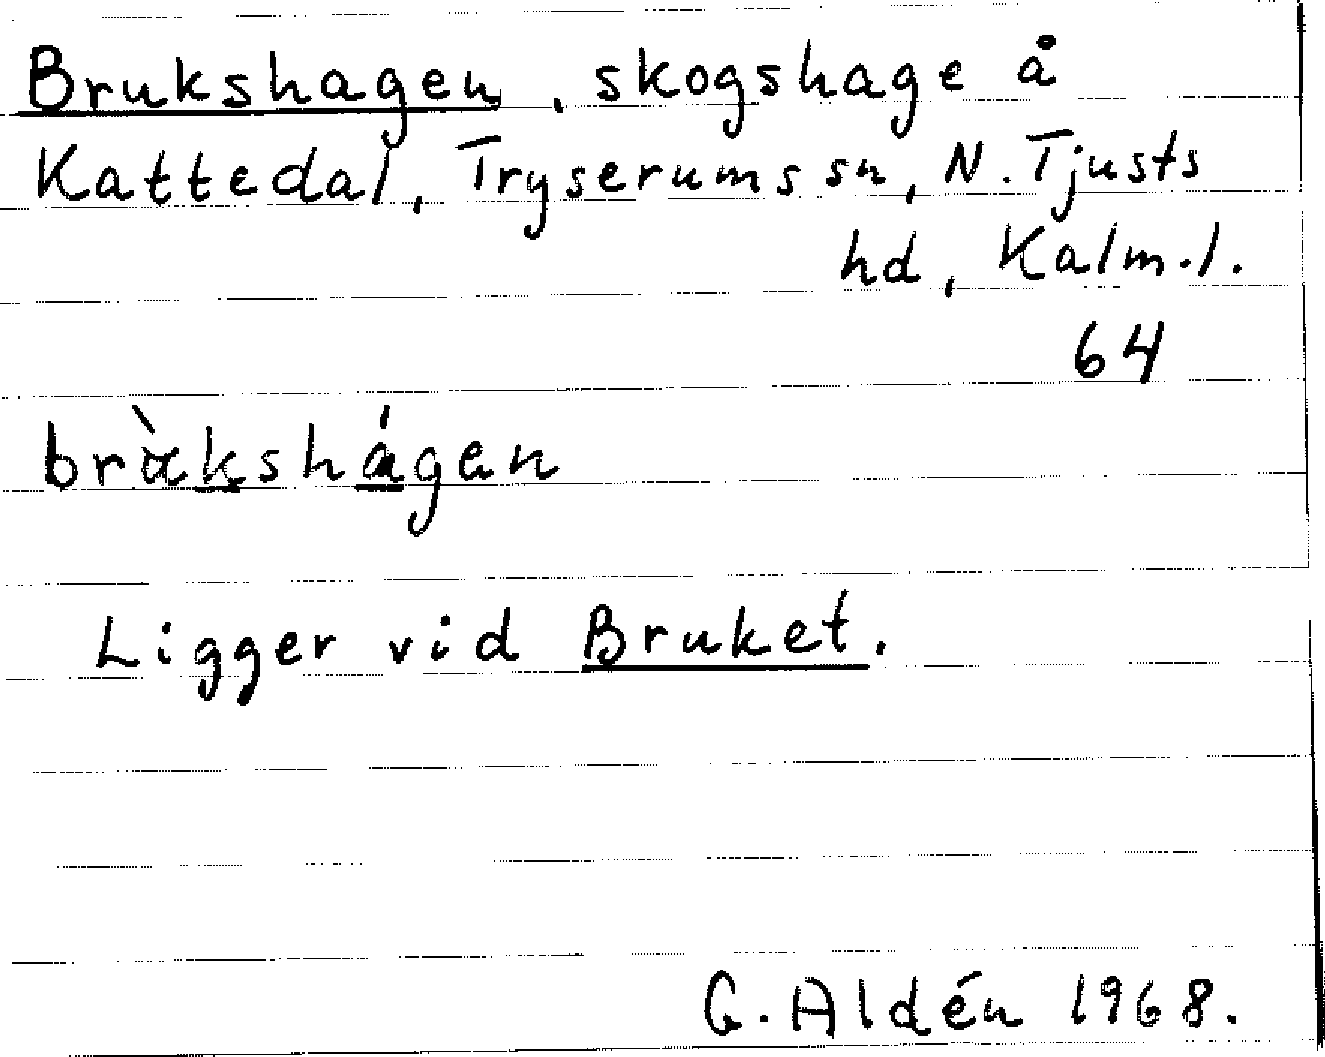 Brukshagen, skogshage å
Kattedal, Tryserums sn, N. Tjusts
hd, Kalm.l.
64
bràkshágen
Ligger vid Bruket.
G. Aldén 1968.